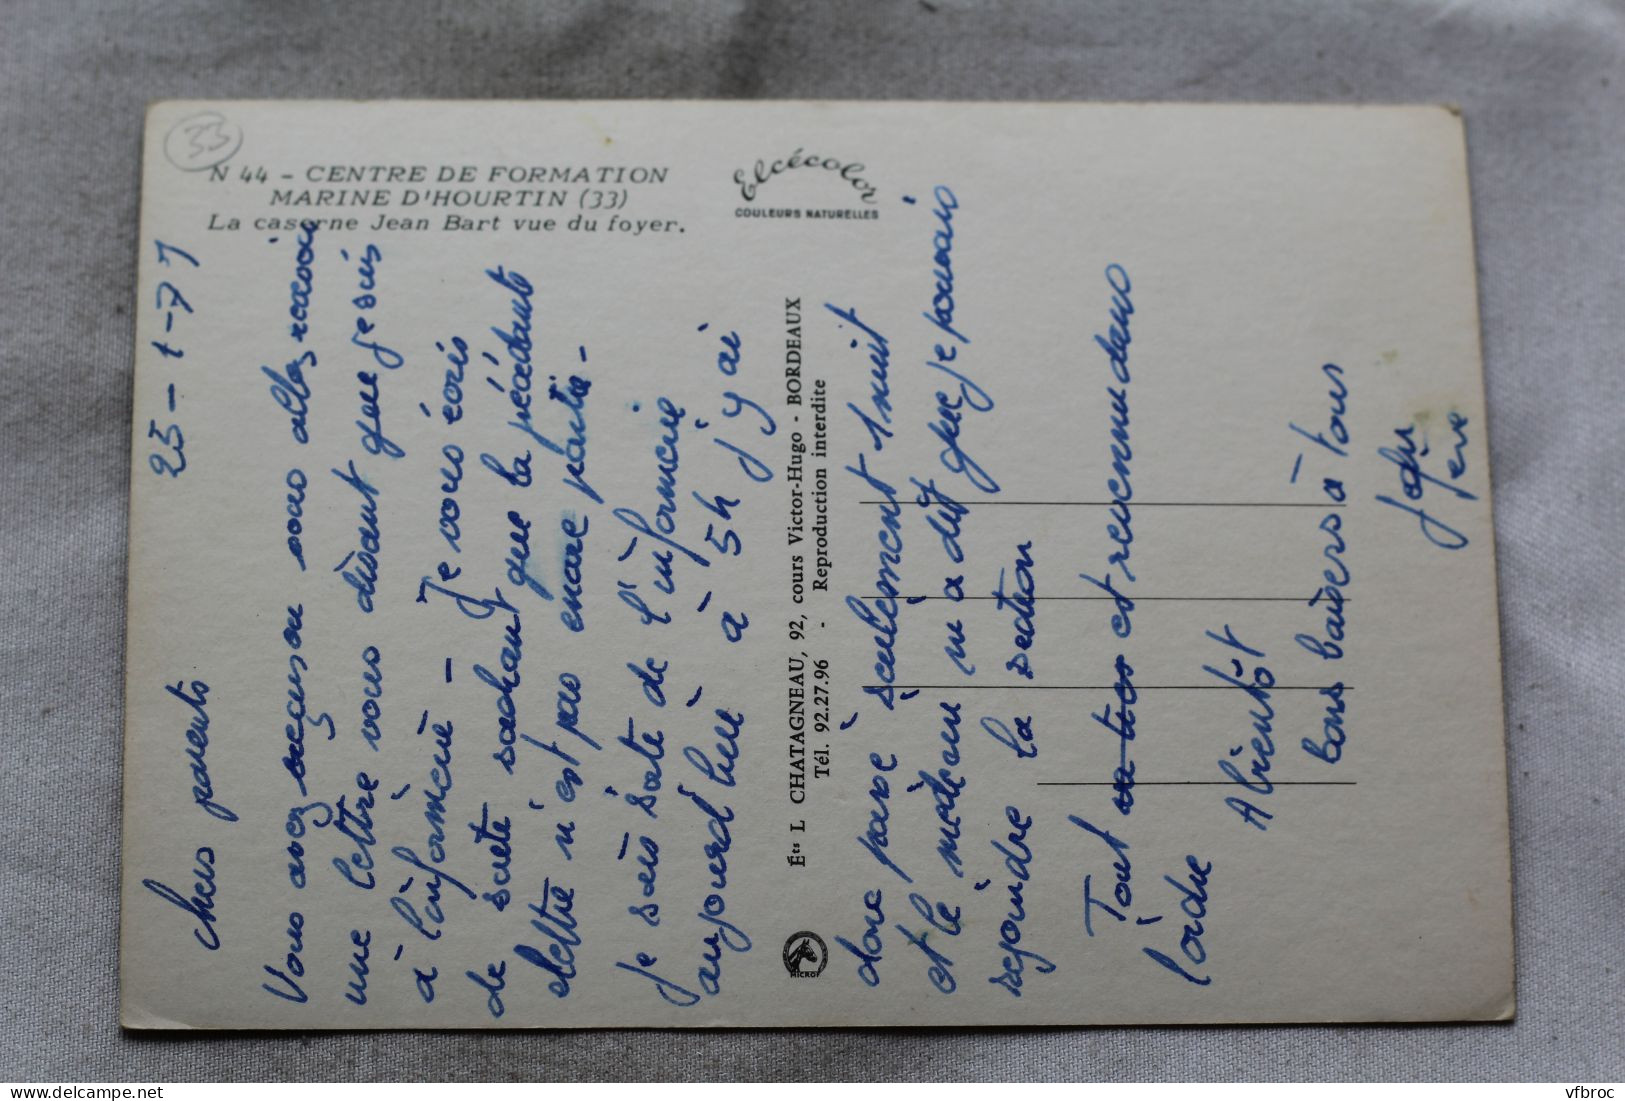 33
N 44 - CENTRE DE FORMATION
MARINE D'HOURTIN (33)
La caserne Jean Bart vue du foyer.
Elcécolor
COULEURS NATURELLES
25-1-77
chers parents
Vous avez vous allez recevoir
une lettre vous disant que je suis
à l'infirmerie - Je vous écris
de suite sachant que la précédente
lettre n'est pas encore partie -
Je suis sorti de l'infirmerie
aujourd'hui à 5h j'y ai
Éts L CHATAGNEAU, 92, cours Victor-Hugo - BORDEAUX
Tél. 92.27.96 - Reproduction interdite
MICRO
donc passé seulement 1 nuit
et le médecin m'a dit que je pouvais
rejoindre la section
Tout est revenu dans
l'ordre
A bientôt
bons baisers à tous
delcampe.net
vfbroc